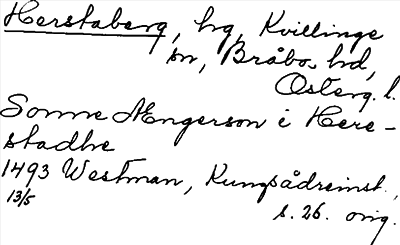 Herstaberg, hg, Kvillinge
sn, Bråbo hd,
Österg. l.
Sonne Mngerson i Here-
stadhe
1493 Westman, Kungsådreinst.,
13/5
s. 26. orig.